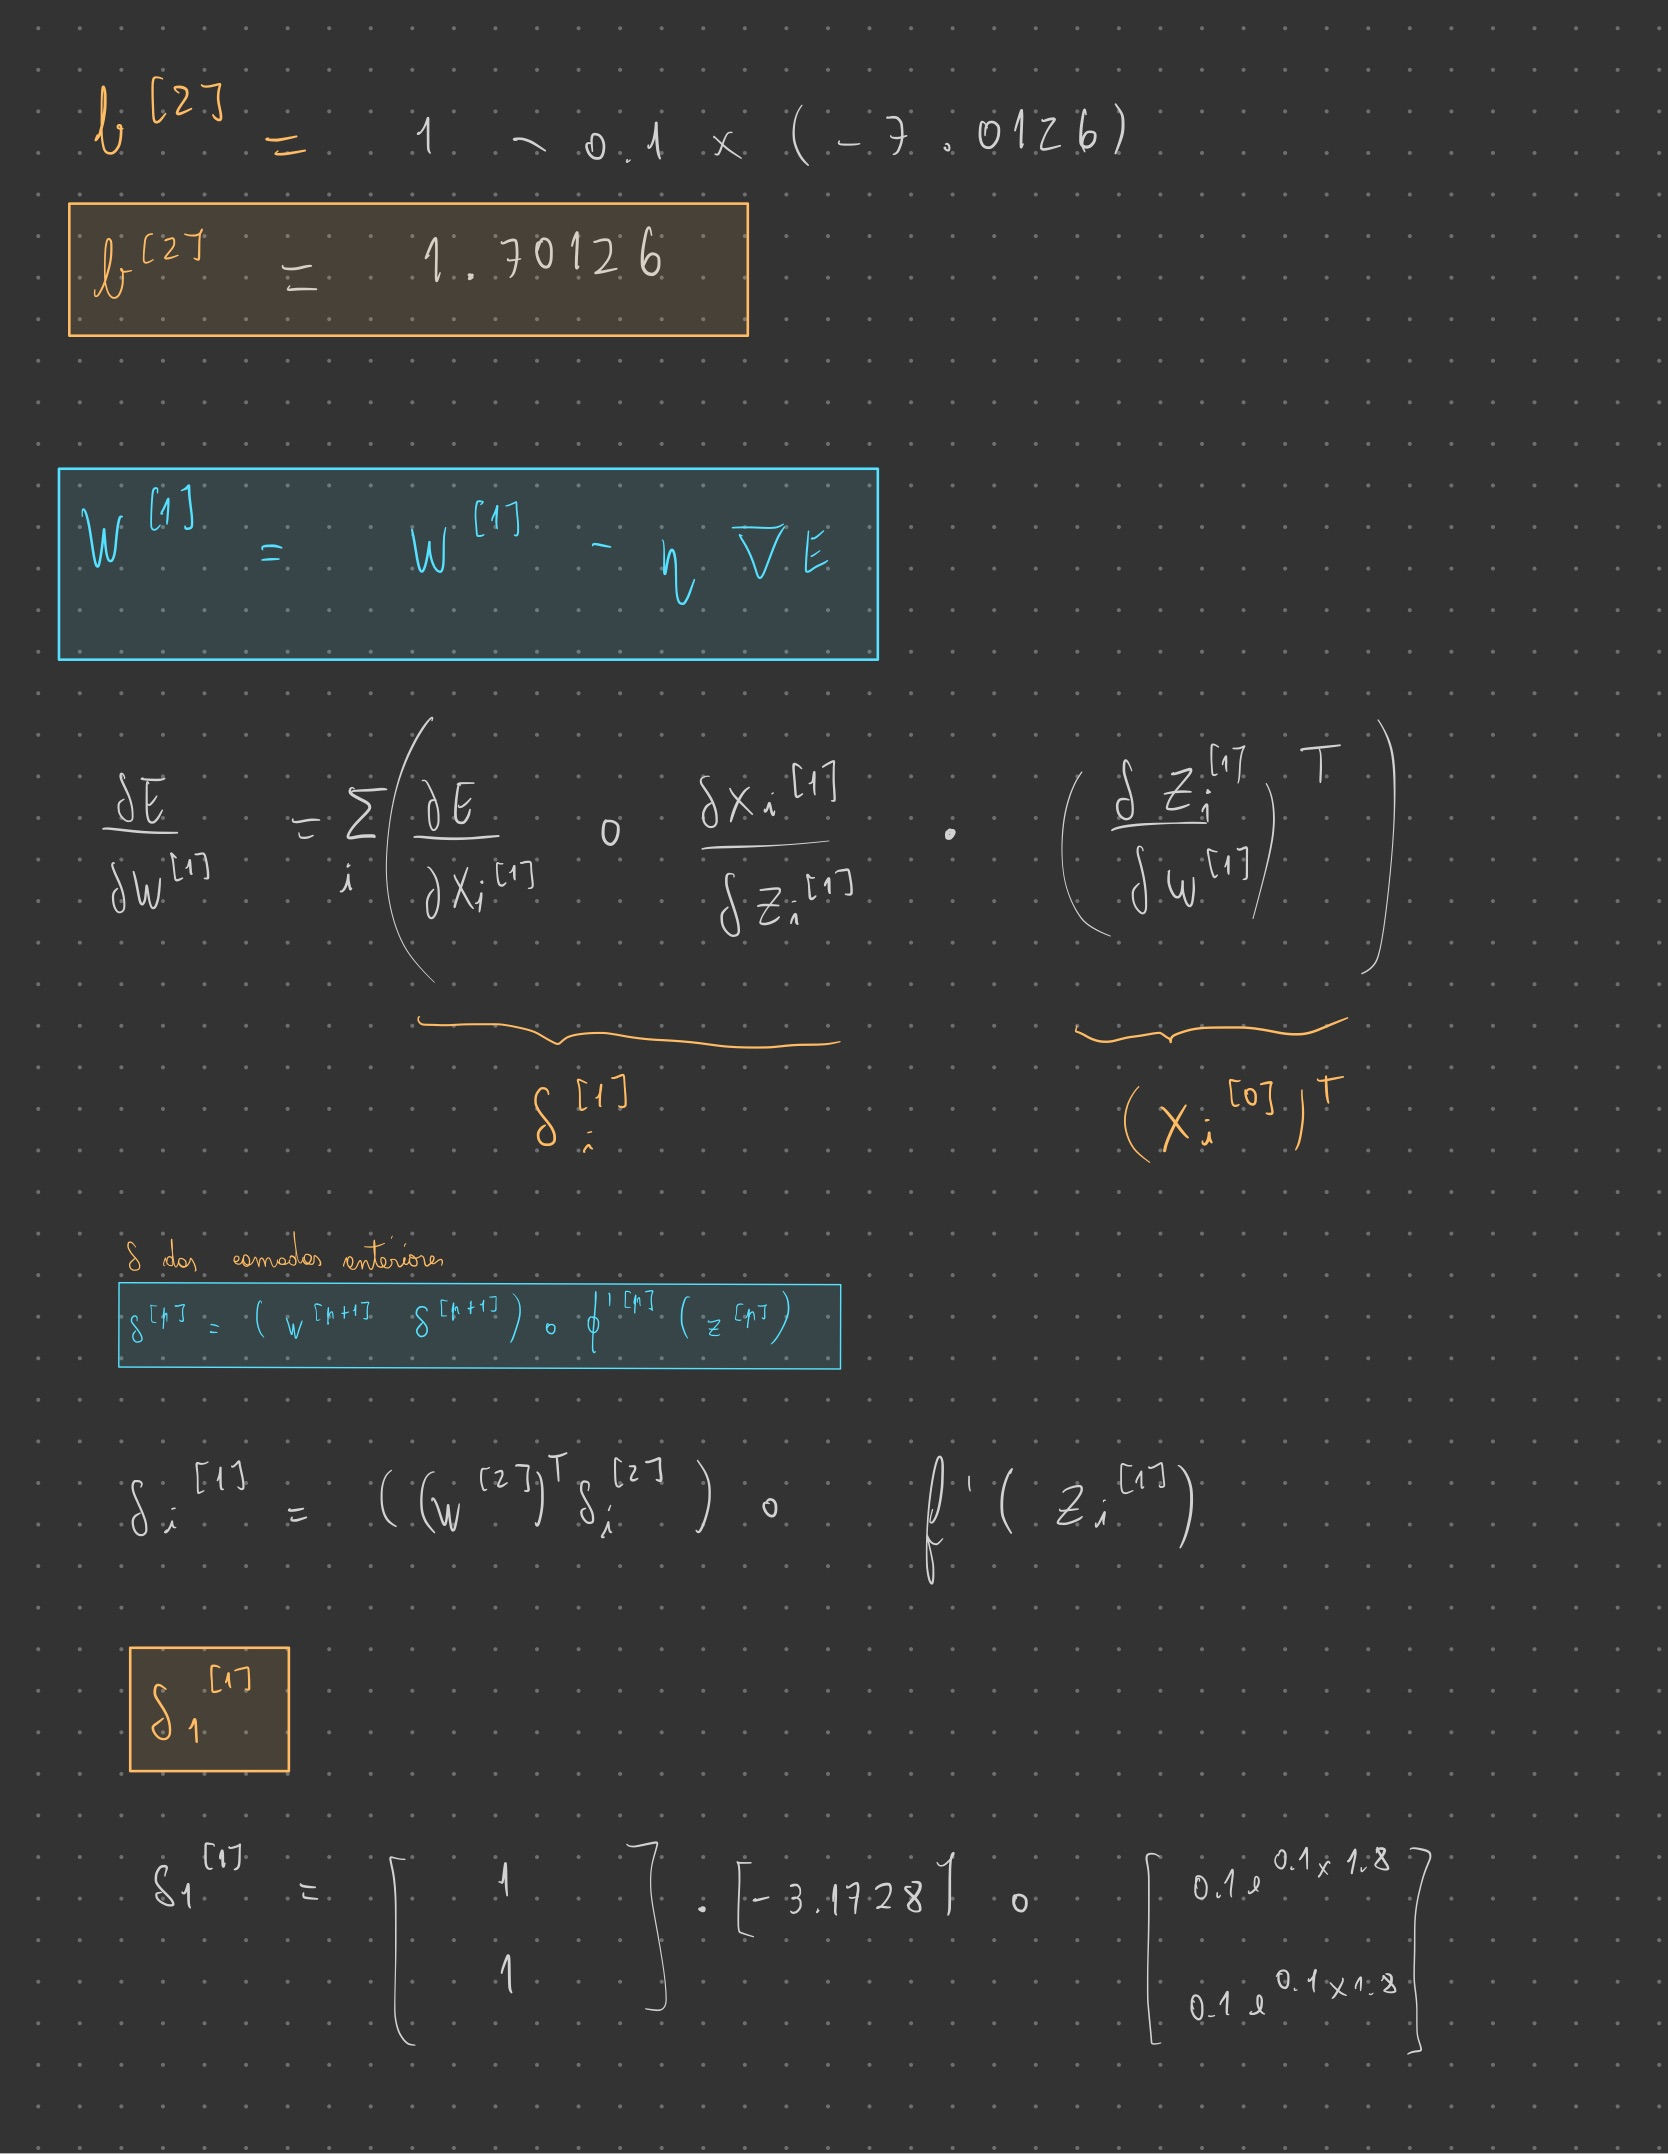 b^[2] = 1 - 0.1 × (-7.0126)
b^[2] = 1.70126
W^[1] = W^[1] - η ∇E
∂E/∂W^[1] = Σ_i ( ∂E/∂X_i^[1] ∘ ∂X_i^[1]/∂Z_i^[1] · ( ∂Z_i^[1]/∂W^[1] )^T )
δ_i^[1] (X_i^[0])^T
δ das camadas anteriores
δ^[n] = ( W^[n+1] δ^[n+1] ) ∘ ϕ'^[n] ( z^[n] )
δ_i^[1] = ( (W^[2])^T δ_i^[2] ) ∘ f' ( Z_i^[1] )
δ_1^[1]
δ_1^[1] = [ 1 1 ] · [-3.1728] ∘ [ 0.1e^0.1×1.8 0.1e^0.1×1.8 ]